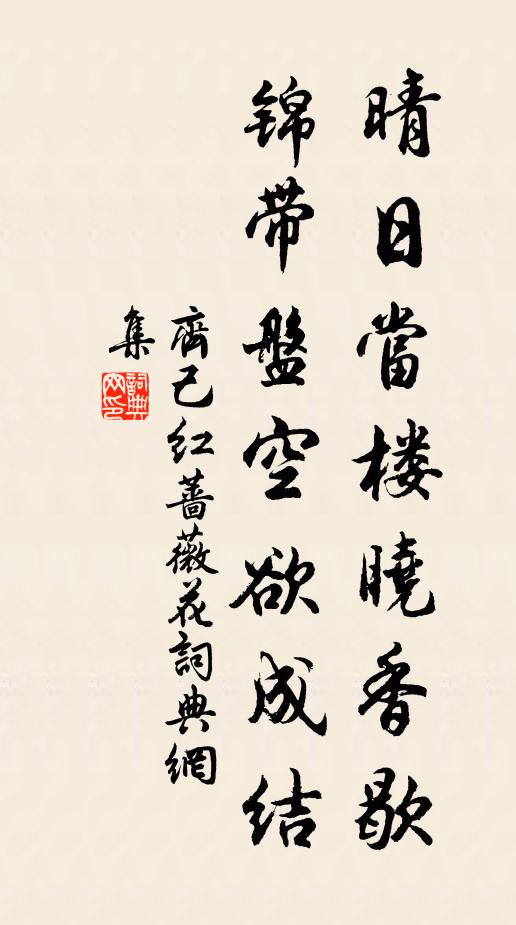 晴日當楼曉香歇
锦带盤空欲成結
齊己红薔薇花詞典網
集
詞典网印